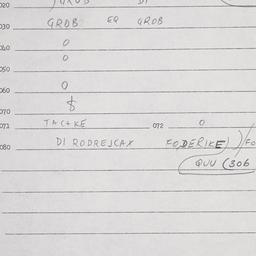 020
030 GROB EQ GROB
040 0
050 0
060 0
$
070
071 TACHKE 072 0
080 DI RODREJCAX FODERIKE)
QUU (306